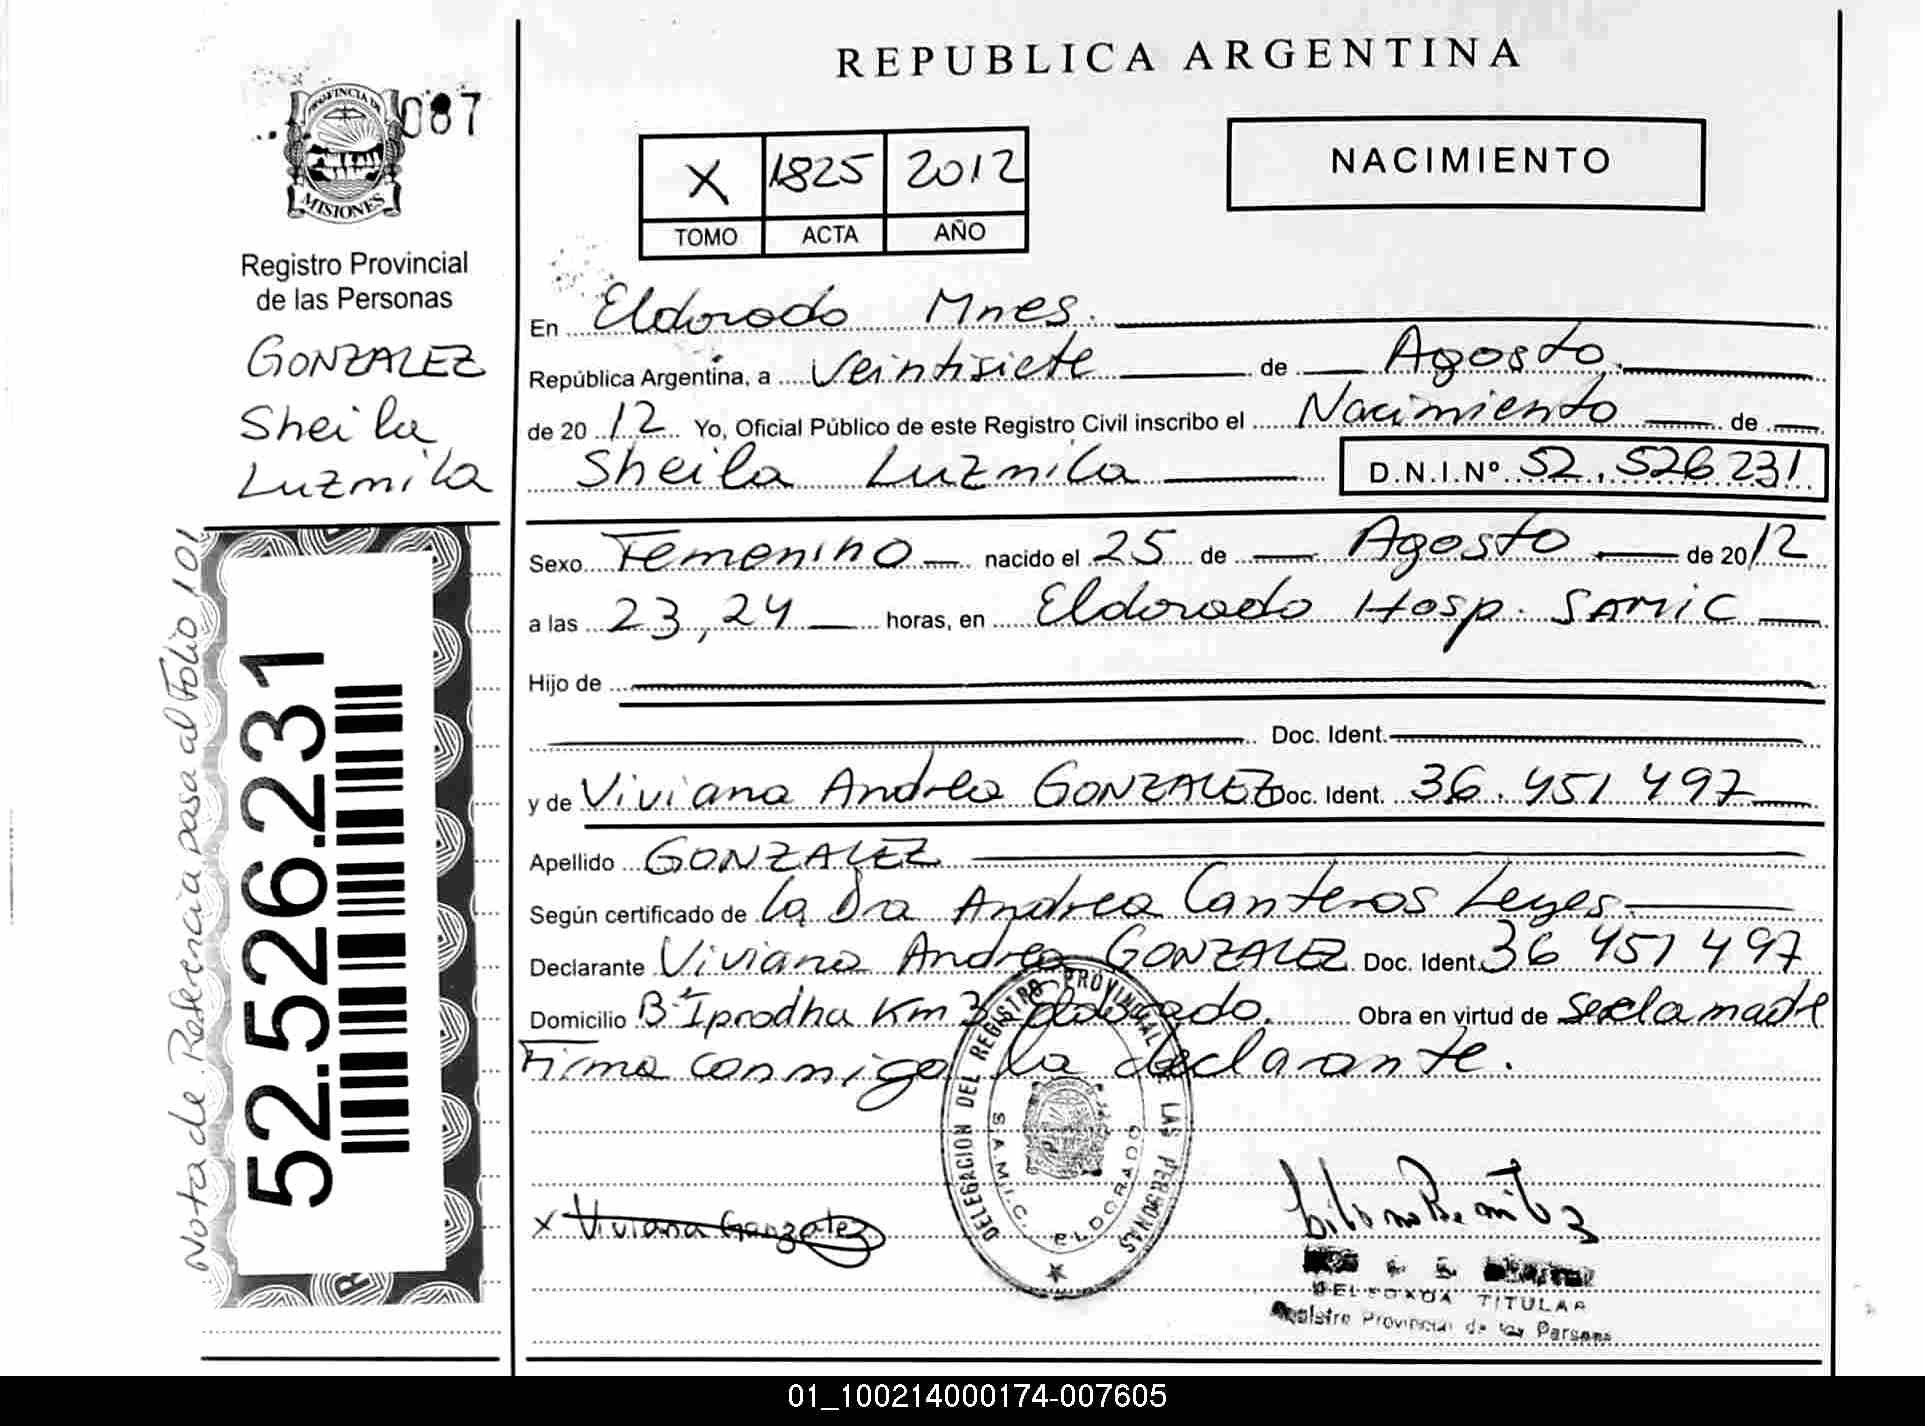 REPUBLICA ARGENTINA
PROVINCIA DE
MISIONES
087
Registro Provincial
de las Personas
GONZALEZ
Sheila
Luzmila
Nota de Referencia pasa al Folio 101
52.526.231
X 1825 2012
TOMO ACTA AÑO
NACIMIENTO
En Eldorado Mnes.
República Argentina, a Veintisiete de Agosto
de 2012 Yo, Oficial Público de este Registro Civil inscribo el Nacimiento de
Sheila Luzmila D.N.I.Nº 52.526231
Sexo Femenino nacido el 25 de Agosto de 2012
a las 23,24 horas, en Eldorado Hosp. SAMIC
Hijo de
Doc. Ident.
y de Viviana Andrea GONZALEZ Doc. Ident. 36.451497
Apellido GONZALEZ
Según certificado de la Dra Andrea Canteros Leyes
Declarante Viviana Andrea GONZALEZ Doc. Ident. 36 451 497
Domicilio Bº Iprodha Km 3 Eldorado. Obra en virtud de ser la madre
Firma conmigo la declarante.
DELEGACION DEL REGISTRO PROVINCIAL DE LAS PERSONAS
S.A.M.I.C. ELDORADO
x Viviana Gonzalez
DELEGADA TITULAR
Registro Provincial de las Personas
01_100214000174-007605